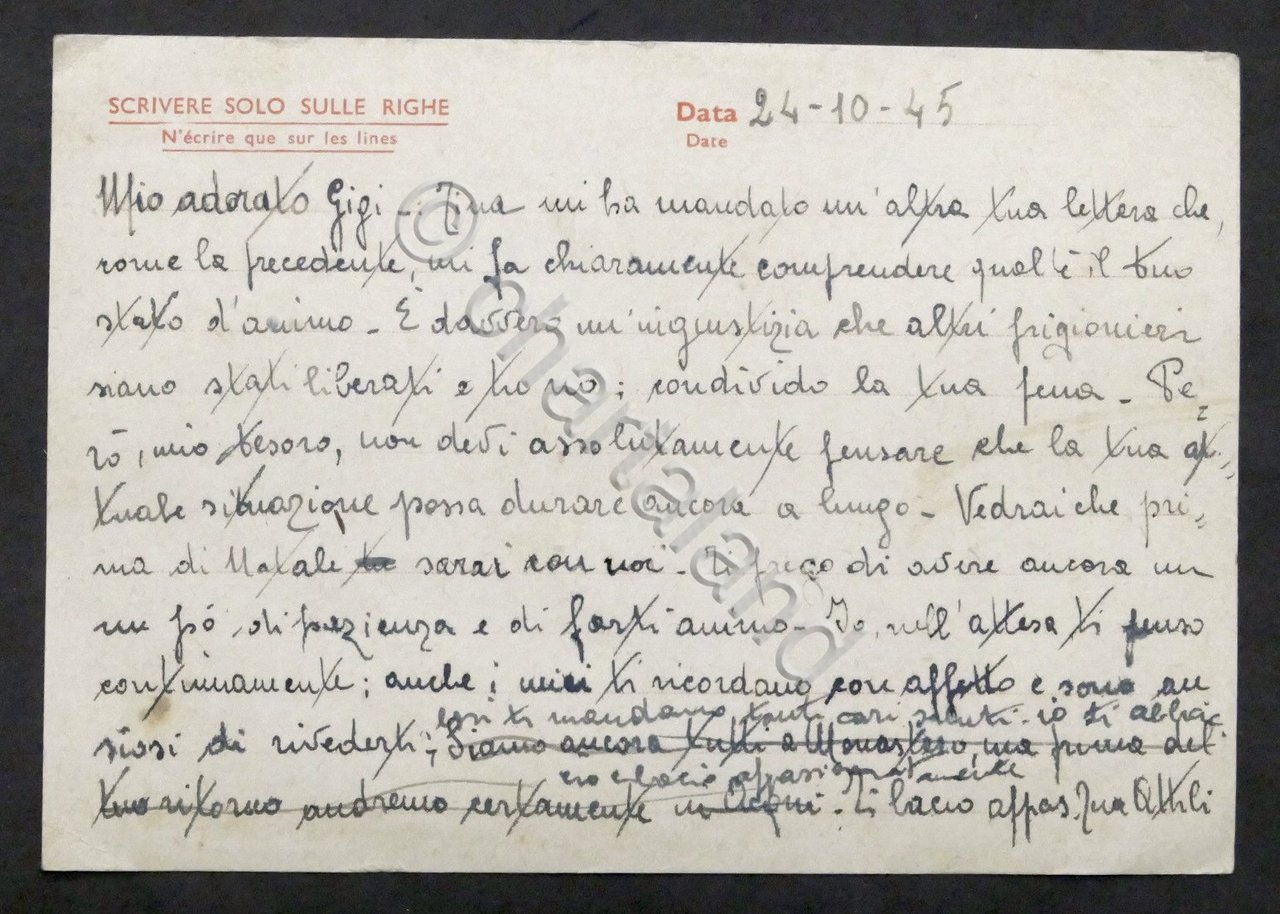 SCRIVERE SOLO SULLE RIGHE
N'écrire que sur les lines
Data 24-10-45
Date
Mio adorato Gigi - Tina mi ha mandato un'altra tua lettera che,
come la precedente, mi fa chiaramente comprendere qual'è il tuo
stato d'animo - È davvero un'ingiustizia che altri prigionieri
siano stati liberati e tu no; condivido la tua pena - Pe=
rò, mio tesoro, non devi assolutamente pensare che la tua at=
tuale situazione possa durare ancora a lungo - Vedrai che pri=
ma di Natale sarai con noi - Ti prego di avere ancora un
un pó di pazienza e di farti animo - Io, nell'attesa ti penso
continuamente; anche i miei ti ricordano con affetto e sono an
siosi di rivederti;
essi ti mandano tanti cari saluti - io ti abbrac
Siamo ancora tutti a Monastero, ma prima del
cio e bacio appassionatamente
tuo ritorno andremo certamente in Acqui - Ti bacio appas. tua Ottili
© chartaland